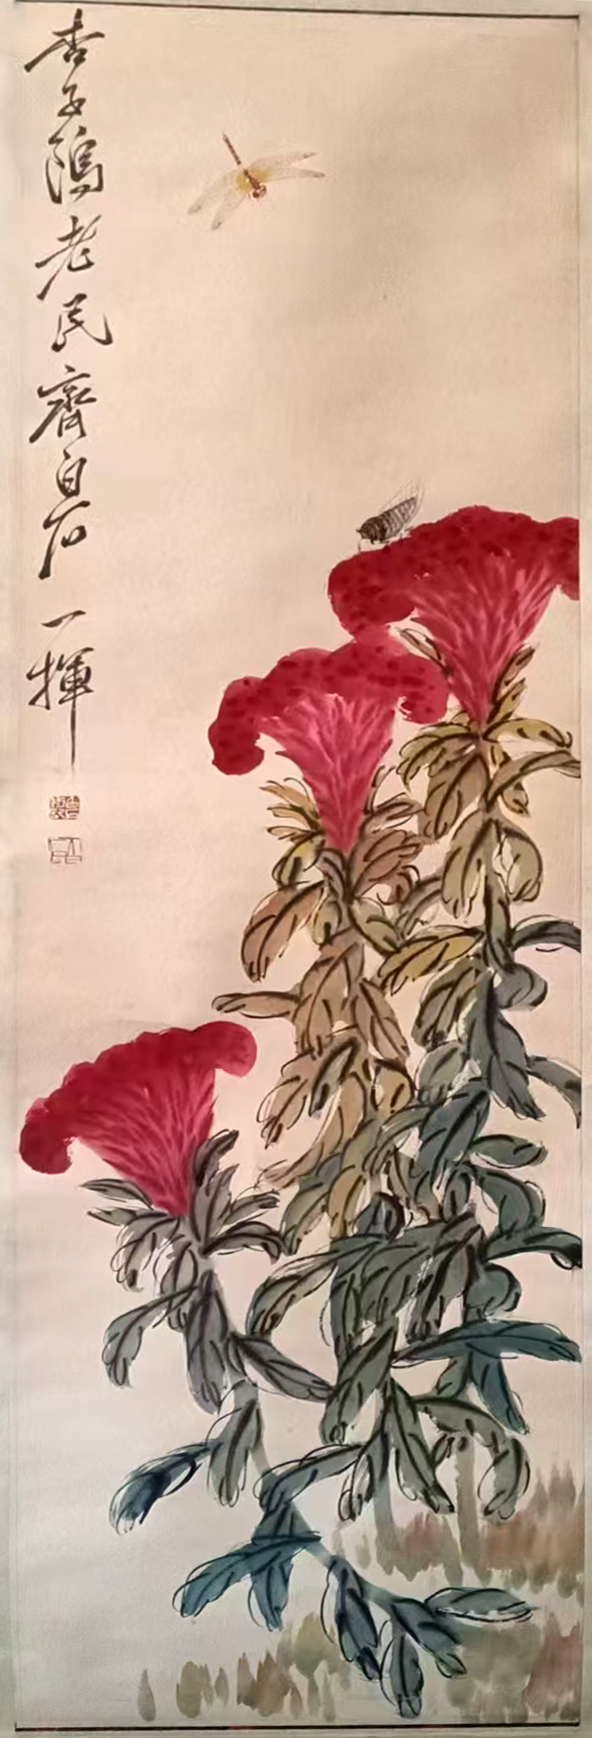 杏子隖老民齊白石一揮